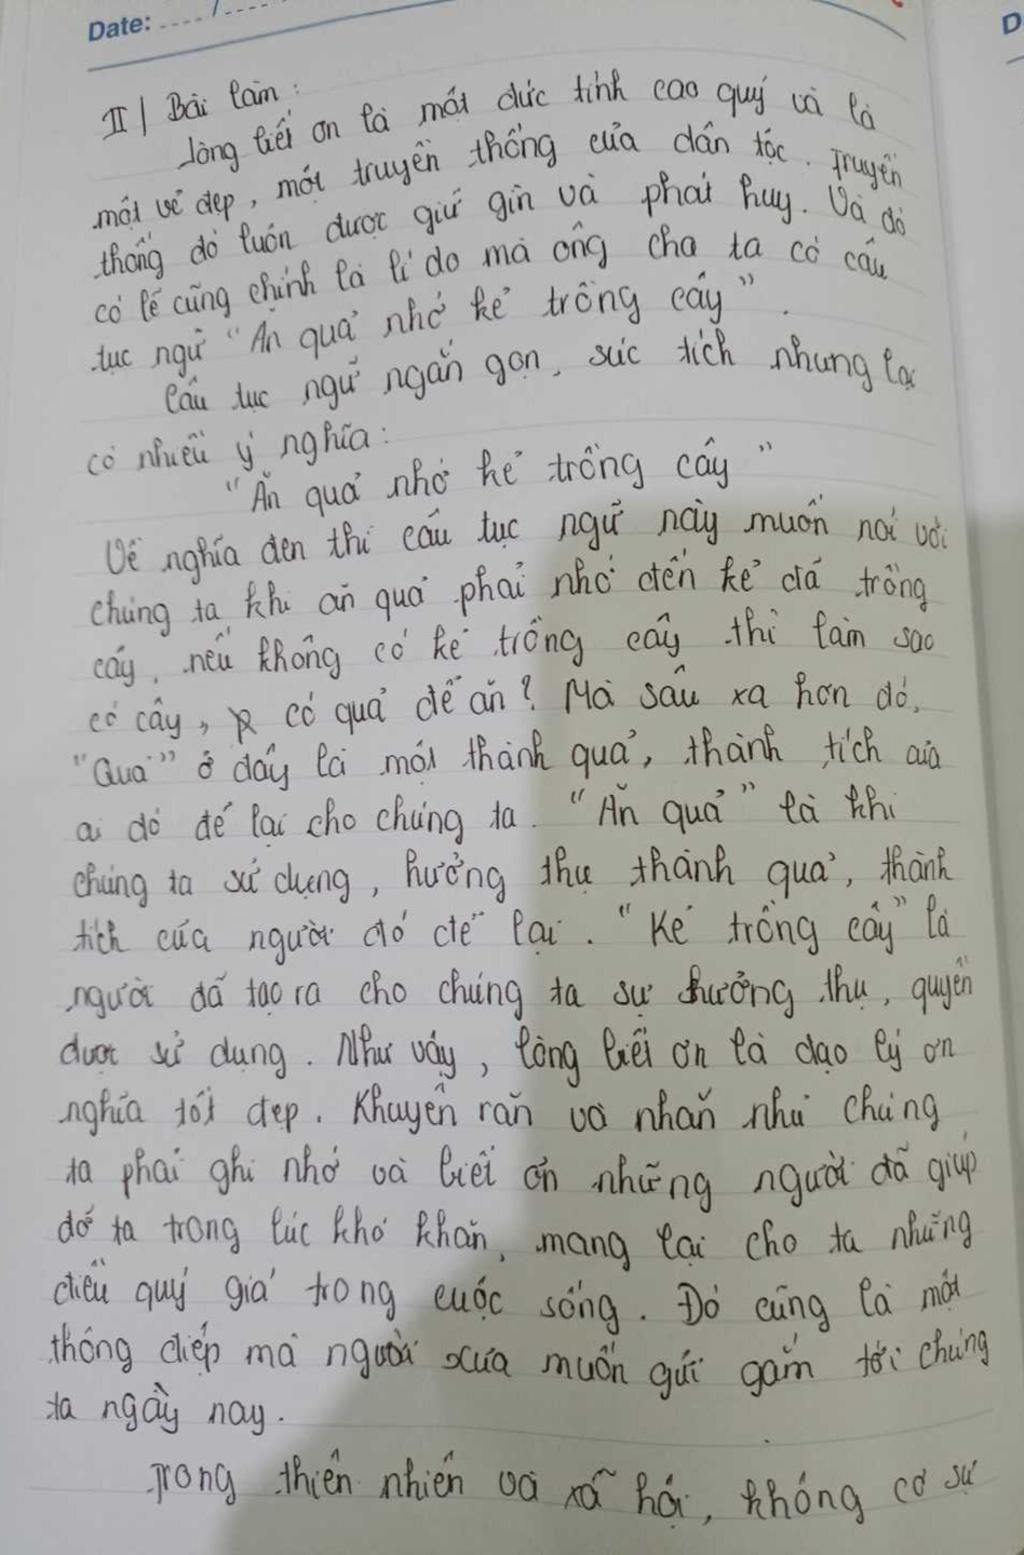 Date:
D
II / Bài làm:
Lòng biết ơn là một đức tính cao quý và là
một vẻ đẹp, một truyền thống của dân tộc. Truyền
thống đó luôn được giữ gìn và phát huy. Và đó
có lẽ cũng chính là lí do mà ông cha ta có câu
tục ngữ "Ăn quả nhớ kẻ trồng cây".
Câu tục ngữ ngắn gọn, súc tích nhưng lại
có nhiều ý nghĩa:
"Ăn quả nhớ kẻ trồng cây"
Về nghĩa đen thì câu tục ngữ này muốn nói với
chúng ta khi ăn quả phải nhớ đến kẻ đã trồng
cây, nếu không có kẻ trồng cây thì làm sao
có cây, có quả để ăn? Mà sâu xa hơn đó,
"Quả" ở đây là một thành quả, thành tích của
ai đó để lại cho chúng ta. "Ăn quả" là khi
chúng ta sử dụng, hưởng thụ thành quả, thành
tích của người đó để lại. "Kẻ trồng cây" là
người đã tạo ra cho chúng ta sự hưởng thụ, quyền
được sử dụng. Như vậy, lòng biết ơn là đạo lý ơn
nghĩa tốt đẹp. Khuyên răn và nhắn nhủ chúng
ta phải ghi nhớ và biết ơn những người đã giúp
đỡ ta trong lúc khó khăn, mang lại cho ta những
điều quý giá trong cuộc sống. Đó cũng là một
thông điệp mà người xưa muốn gửi gắm tới chúng
ta ngày nay.
Trong thiên nhiên và xã hội, không có sự